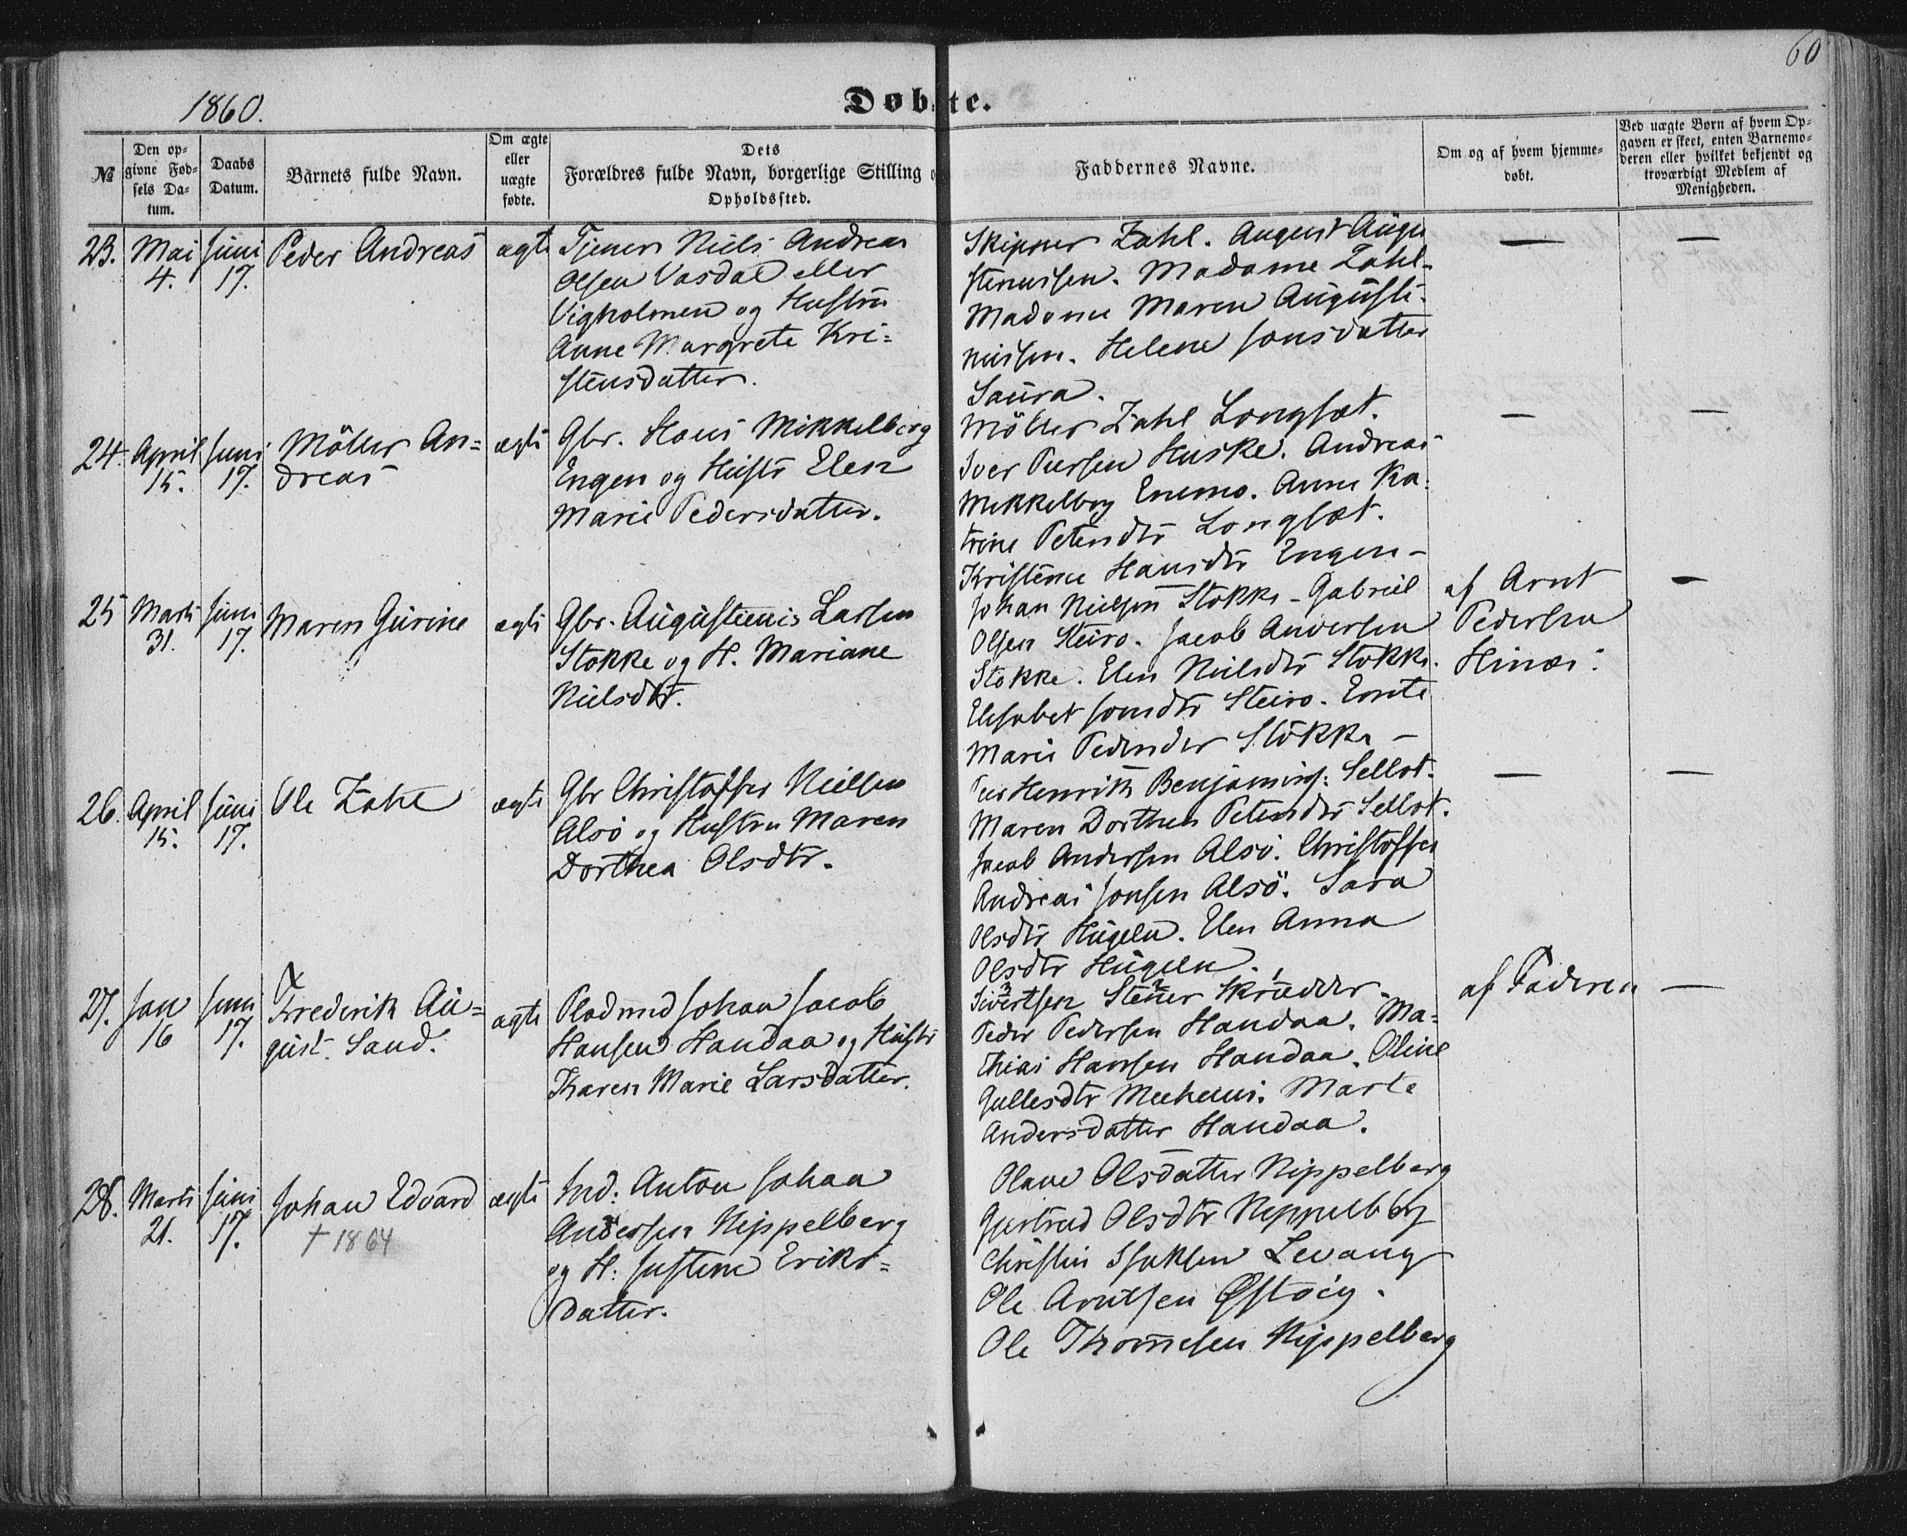 60
1860.
Döbte.
№
Den opgivne Fødsels Datum.
Daabs Datum.
Barnets fulde Navn.
Om ægte eller uægte fødte.
Dets Forældres fulde Navn, borgerlige Stilling o Opholdssted.
Faddernes Navne.
Om og af hvem hjemmedøbt.
Ved uægte Børn af hvem Opgaven er skeet, enten Barnemoderen eller hvilket bekjendt og troværdigt Medlem af Menigheden.
23. Mai 4. Juni 17. Peder Andreas ægte
Tjener Niels Andreas
Olsen Vasdal eller
Vigholmen og Hustru
Anne Margrete Kri=
stensdatter.
Skipper Zahl. August Augu
stinussen. Madame Zahl-
Madame Maren Augusti-
nussen. Helene Jonsdatter
Saura.
— —
24. April 15. Juni 17. Möller An=
dreas
ægte
Gbr. Hans Mikkelborg
Engen og Hustr Elen
Marie Pedersdatter.
Möller Zahl Langsæt.
Iver Persen Huske. Andreas
Mikkelborg Enemo. Anne Ka-
trine Petersdtr Langsæt.
Kristence Hansdtr Engen —
— —
25 Marts 31. Juni 17. Maren Gurine ægte
Gbr. Augustinus Larsen
Stokke og H. Mariane
Nielsdtr.
Johan Nielsen Stokke - Gabriel
Olsen Steiro. Jacob Andersen
Stokke. Elen Nielsdtr Stokke.
Elisabet Jonsdtr Steiro. Ernte
Marie Pedersdtr Stokke —
af Arnt
Pedersen
Hinæs.
—
26. April 15. Juni 17. Ole Zahl ægte
Gbr Christoffer Nielsen
Alsö og Hustru Maren
Dorthea Olsdtr.
Peer Henrik Benjamins: Sellot.
Maren Dorthea Petersdtr Sellot.
Jacob Andersen Alsö. Christoffer
Andreas Jonsen Alsö. Sara
Olsdtr Hugeln. Elen Anna
Olsdtr Hugeln.
— —
27. Jan 16 Juni 17. Frederik Au=
gust Sand.
ægte
Pladsmd Johan Jacob
Hansen Handaa og Hustr
Karen Marie Larsdatter.
Sivertsen Stener Skræder.
Peder Pedersen Handaa. Ma=
thias Hansen Handaa. Oline
Gullesdtr Meehuus. Marte
Andersdatter Handaa.
af Faderen
—
28. Marts 21. Juni 17. Johan Edvard ægte
† 1864
Ind: Anton Johan
Andersen Nippelberg
og H: Justine Eriks=
datter.
Olane Olsdatter Nippelberg
Gjertrud Olsdtr Nippelberg
Christen Isaksen Levang
Ole Arntsen Østvig.
Ole Thomesen Nippelberg